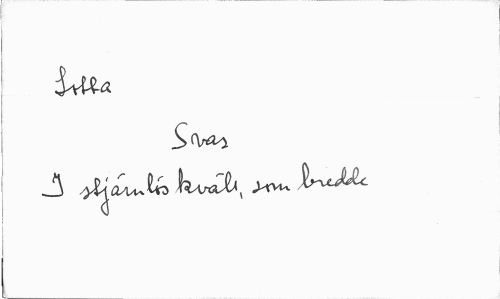 Lotta
Svar
I stjärnlös kväll, som bredde